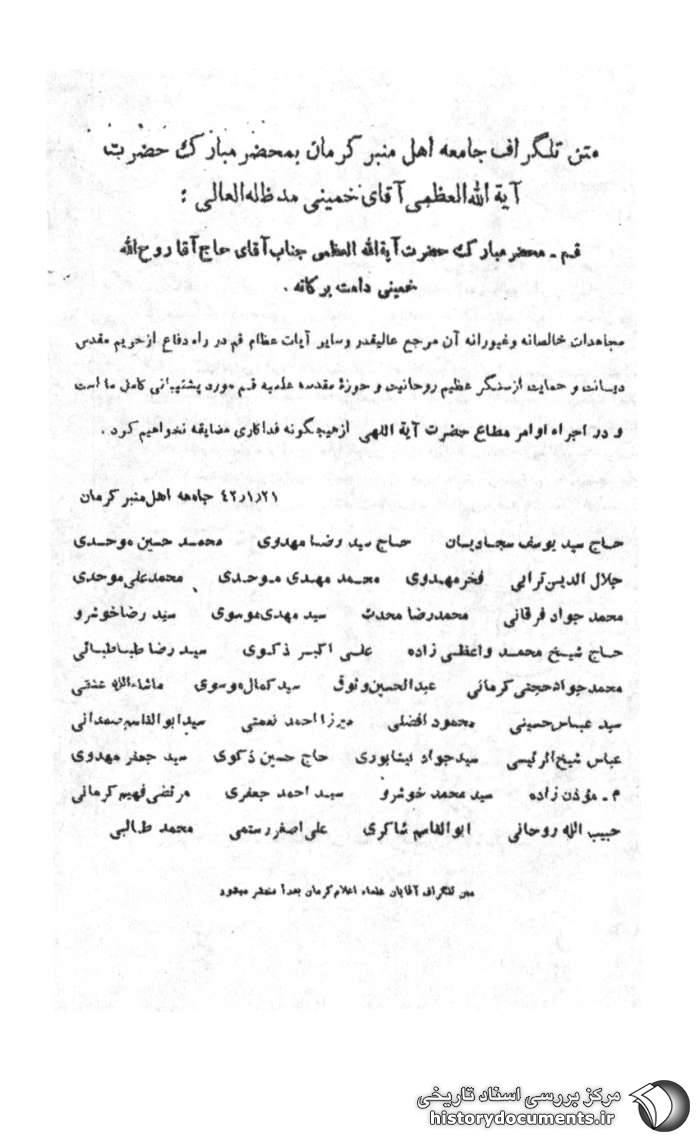 متن تلگراف جامعه اهل منبر کرمان بمحضر مبارک حضرت
آیة الله العظمی آقای خمینی مدظله العالی :
قم ـ محضر مبارک حضرت آیة الله العظمی جناب آقای حاج آقا روح الله
خمینی دامت برکاته .
مجاهدات خالصانه وغیورانه آن مرجع عالیقدر وسایر آیات عظام قم در راه دفاع از حریم مقدس
دیانت و حمایت از سنگر عظیم روحانیت و حوزهٔ مقدسه علمیه قم مورد پشتیبانی کامل ما است
و در اجراء اوامر مطاع حضرت آیة اللهی از هیچگونه فداکاری مضایقه نخواهیم کرد .
۴۲/۱/۲۱ جامعه اهل منبر کرمان
حاج سید یوسف سجادیسان حاج سید رضا مهدوی محمد حسین موحدی
جلال الدین ترابی فخر مهدوی محمد مهدی موحدی محمدعلی موحدی
محمد جواد فرقانی محمدرضا محدث سید مهدی موسوی سید رضا خوشرو
حاج شیخ محمد واعظی زاده علی اکبر ذکوی سید رضا طباطبائی
محمدجواد حجتی کرمانی عبدالحسین وثوق سید کمال موسوی ماشاءالله
سید عباس حسینی محمود افضلی میرزا احمد نعمتی سید ابوالقاسم صمدانی
عباس شیخ الرئیسی سید جواد نیشابوری حاج حسین ذکوی سید جعفر مهدوی
م ـ مؤذن زاده سید محمد خوشرو سید احمد جعفری مرتضی فهیم کرمانی
حبیب الله روحانی ابوالقاسم شاکری علی اصغر رستمی محمد طالبی
متن تلگراف آقایان علماء اعلام کرمان بعداً منتشر میشود
مرکز بررسی اسناد تاریخی
historydocuments.ir